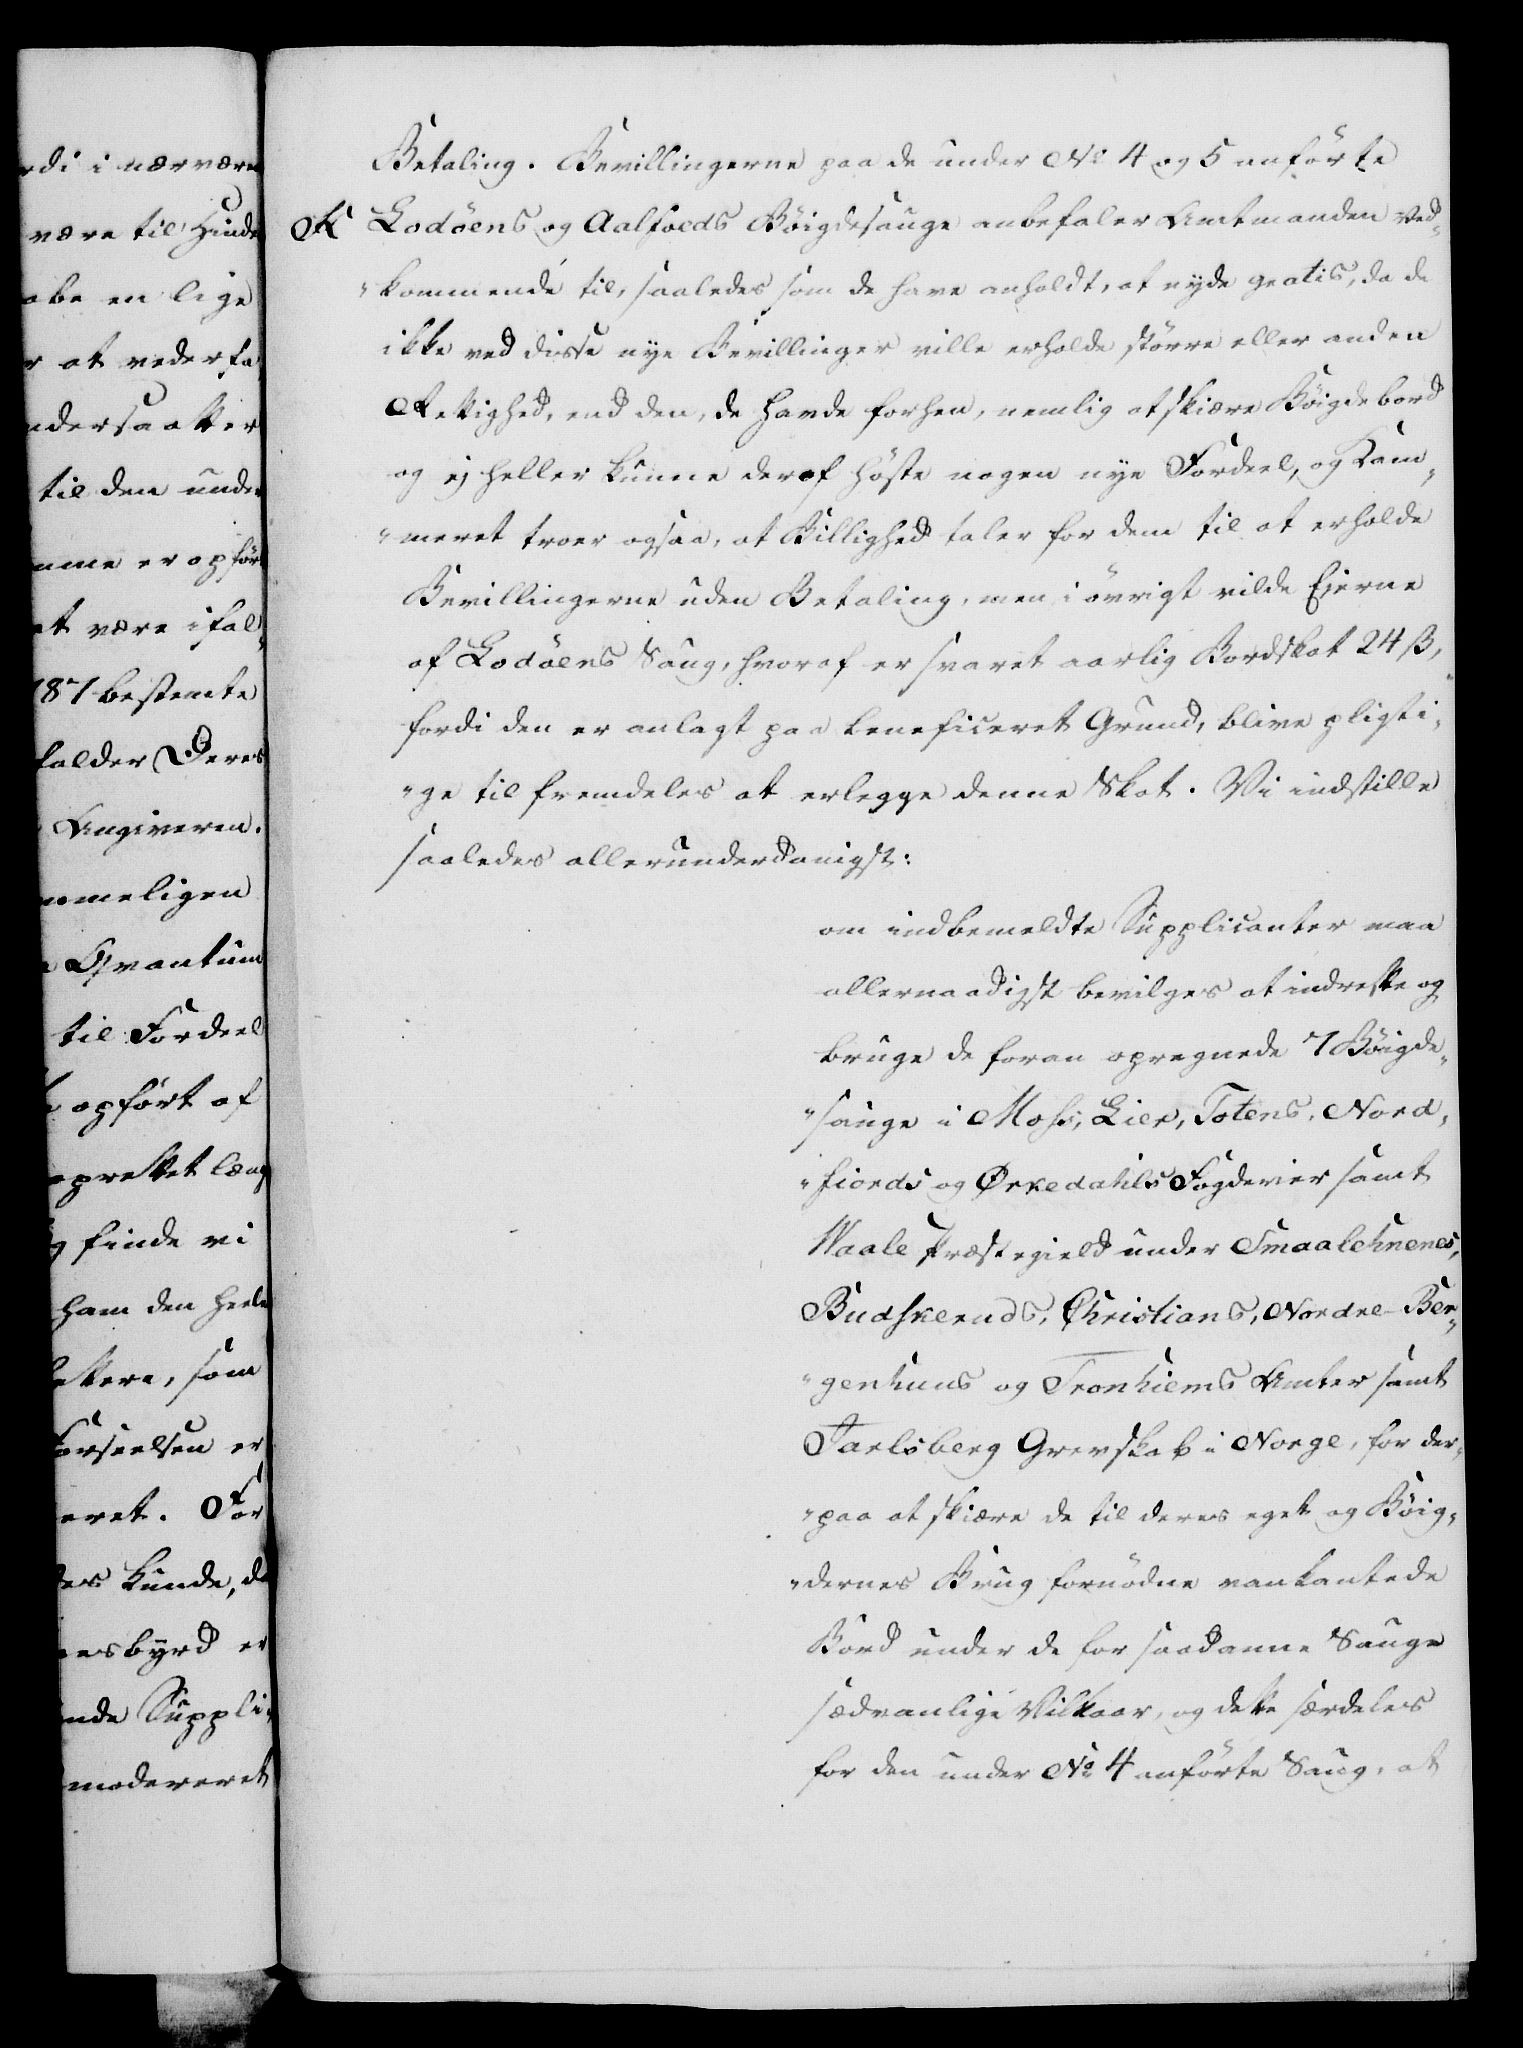 Betaling. Bevillingerne paa de under No 4 og 5 anförte
K Lodöens og Aalfoeds Böigdesauge anbefaler Amtmanden Ved„
„kommende til, saaledes som de have anholdt, at nyde gratis, da de
ikke ved disse nye Bevillinger ville erholde större eller anden
Rettighed, end den, de havde forhen, nemlig at skiære Böigdebord
og ej heller kunne deraf höste nogen nye Fordeel, og Kam„
„meret troer ogsaa, at Billighed taler for dem til at erholde
Bevillingerne uden Betaling, men i övrigt vilde Ejerne
af Lodöens Saug, hvoraf er svaret aarlig Bordskat 24 ß,
fordi den er anlagt paa beneficeret Grund, blive pligti„
„ge til fremdeles at erlegge denne Skat. Vi indstille
saaledes allerunderdanigst:
om indbemeldte Supplicanter maa
allernaadigst bevilges at indrette og
bruge de foran opregnede 7 Böigde„
„sauge i Mohs, Lier, Totens, Nord„
„fiords og Ørkedahls Fogderier samt
Waale Præstegield under Smaalehnenes,
Budskeruds, Christians, Nordre-Ber„
„genhuus og Tronhiems Amter samt
Jarlsberg Grevskab i Norge, for der„
„paa at skiære de til deres eget og Böig„
„dernes Brug fornödne vankantede
Bord under de for saadanne Sauge
sædvanlige Vilkaar, og dette særdeles
for den under No 4 anförte Saug, at
rdi i nærvære
være til Hinde
abe en lige
r at vederfa
ndersaatter
til den unde
mme er opför
at være ifal„
187 bestemte
falder Deres
Angiveren.
mmeligen
Qvantum
til Fordeel
opfört af
oprettet læng
g finde vi
ham den heele
ettere, som
Forseelsen er
eret. For
des kunde, da
nesbyrd er
ende Suppli„
modereret